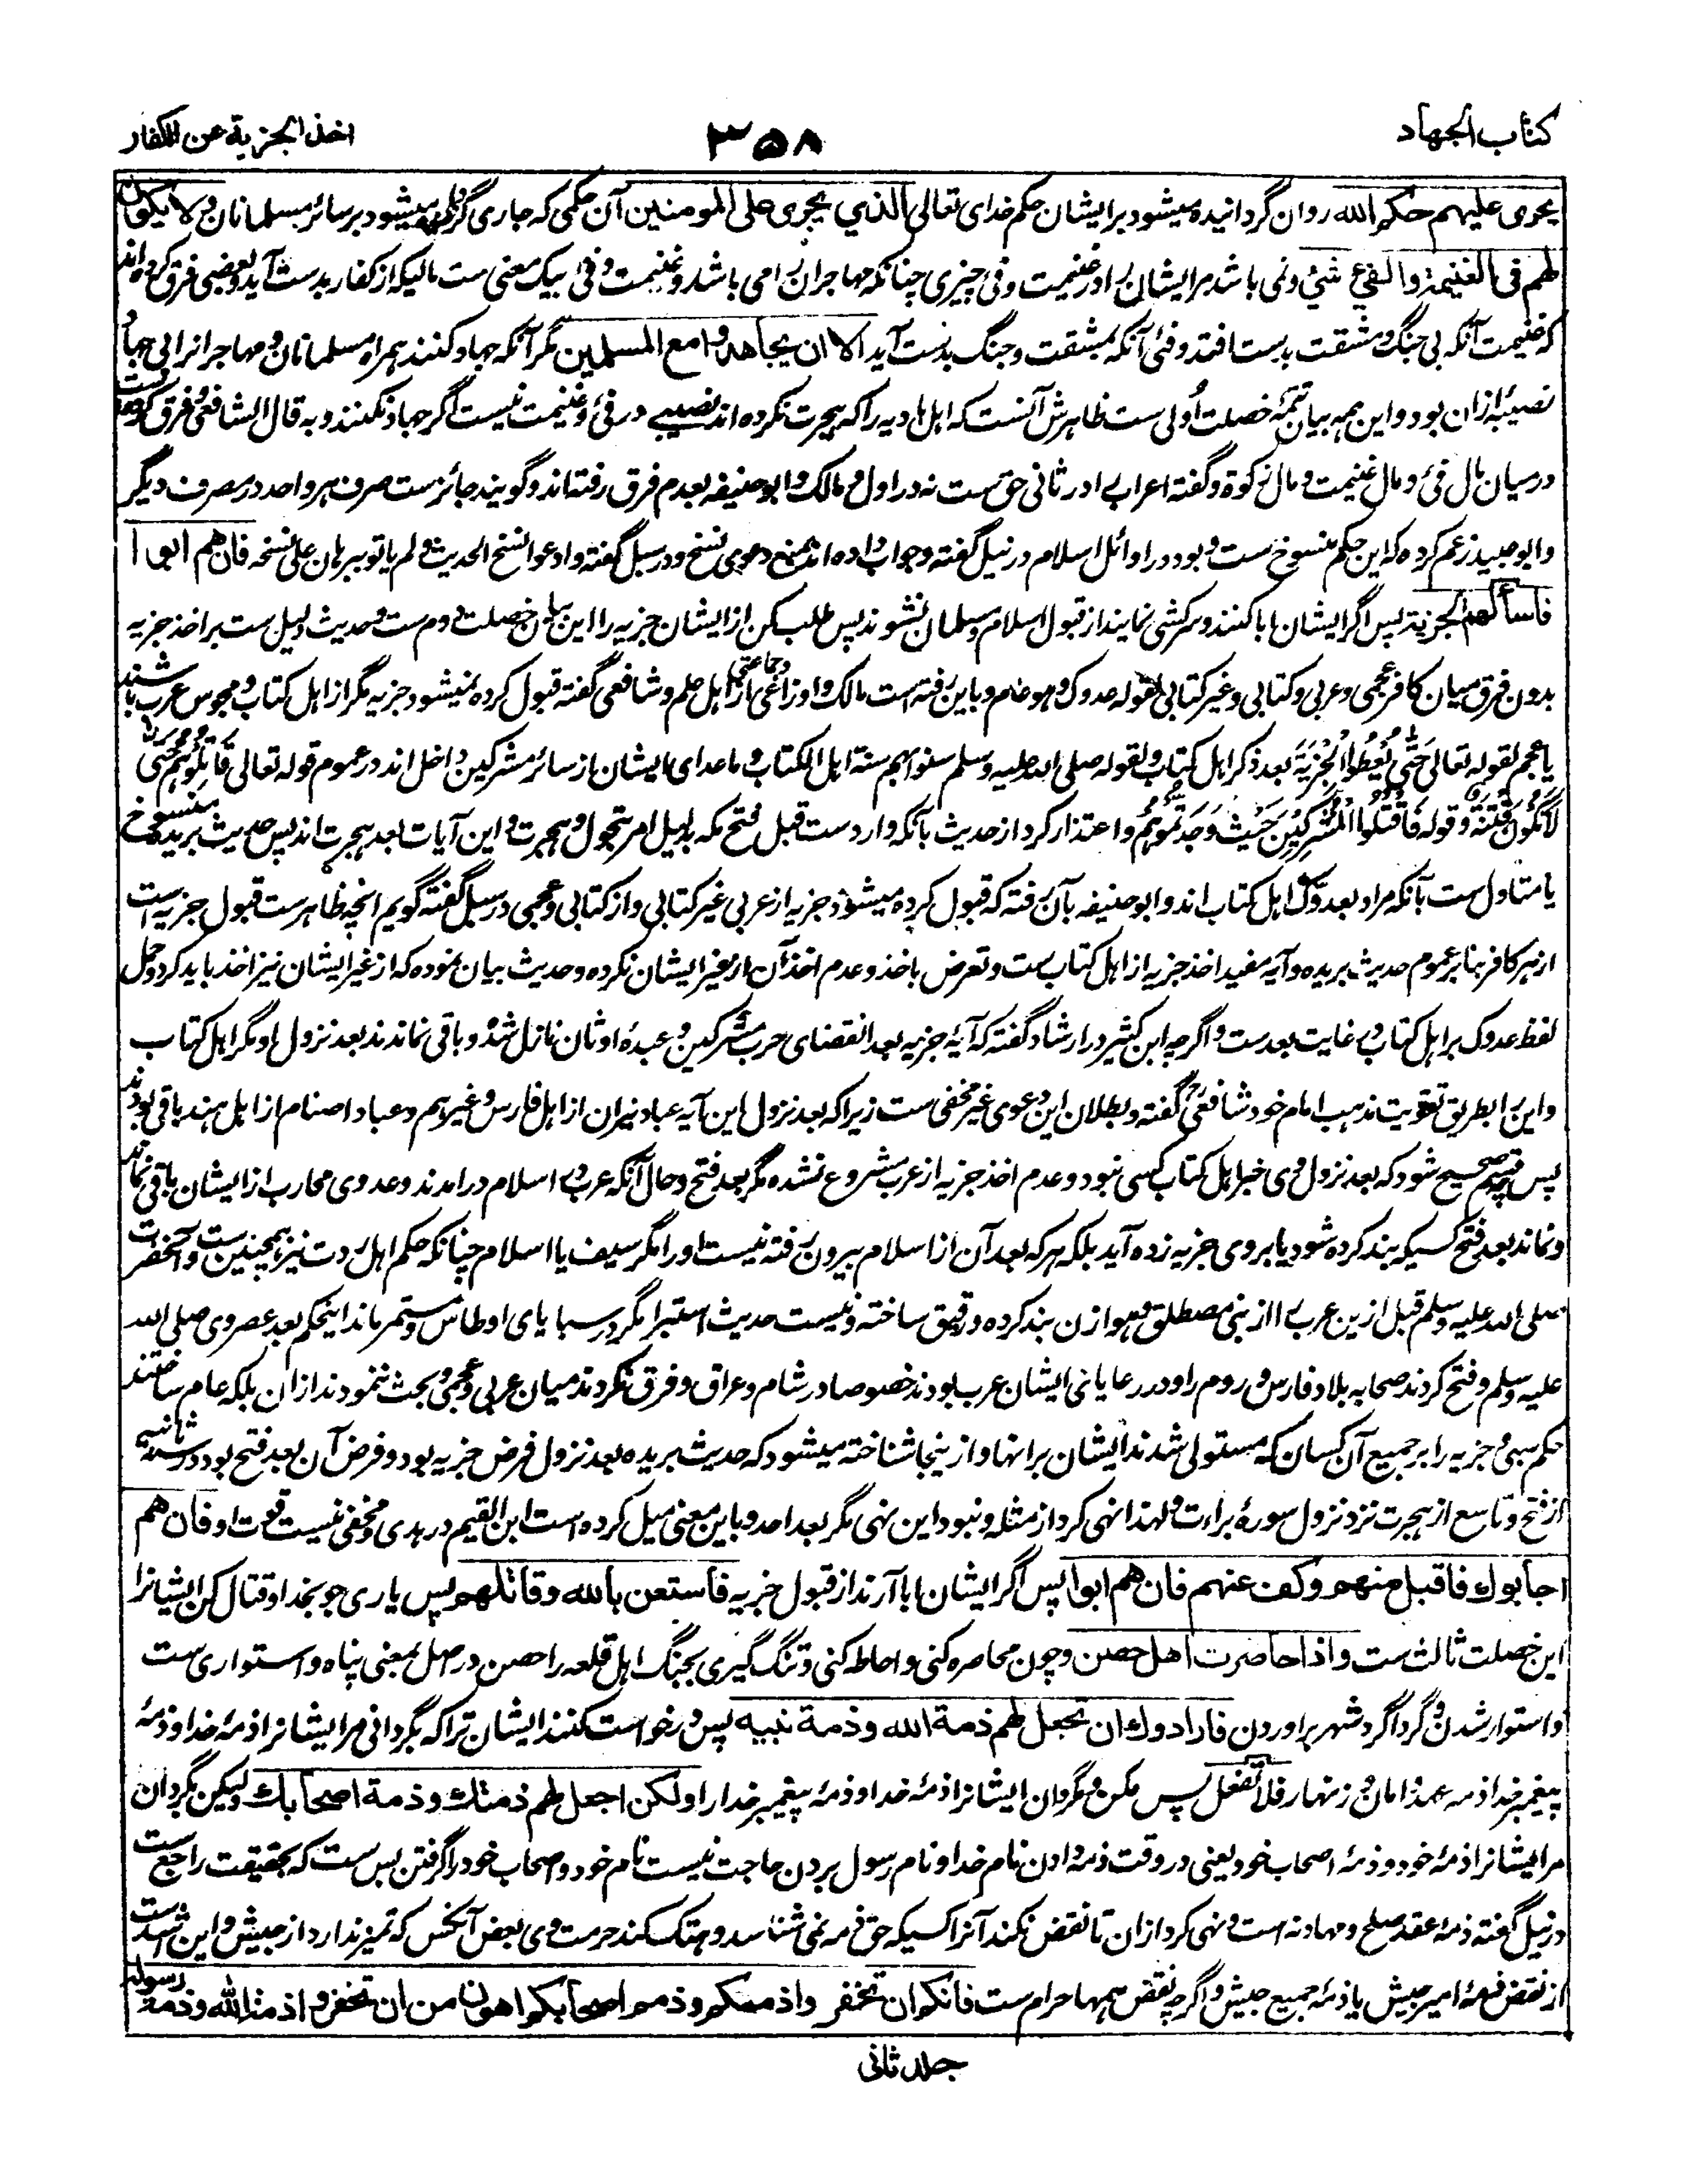 کتاب الجهاد
۳۵۸
اخذ الجزیة عن الکفار
یجری علیهم حکم الله روان گردانیده میشود بر ایشان حکم خدای تعالی الذي یجری علی المومنین آن حکمی که جاری کرده میشود بر سائر مسلمانان و لا یکون
لهم فی الغنیمة والفیٔ شیٔ و نمی باشد مر ایشان را در غنیمت و فیٔ چیزی چنانکه مهاجران را می باشد و غنیمت و فیٔ بیک معنی ست مالیکه از کفار بدست آید و بعضی فرق کرده اند
که غنیمت آنکه بی جنگ و مشقت بدست افتد و فیٔ آنکه بمشقت و جنگ بدست آید الا ان یجاهدوا مع المسلمین مگر آنکه جهاد کنند همراه مسلمانان و مهاجرانرا بی جهاد
نصیبه ازان بود و این همه بیان تتمهٔ خصلت اُولی ست ظاهرش آنست که اهل بادیه را که هجرت نکرده اند نصیبے در فیٔ و غنیمت نیست اگر جهاد نکنند و به قال الشافعی و فرق کرده است
درمیان مال فیٔ و مال غنیمت و مال زکوة و گفته اعراب را در ثانی حق ست نه در اول و مالک و ابوحنیفه بعدم فرق رفته اند و گویند جائزست صرف هر واحد در مصرف دیگر
و ابوعبید زعم کرده که این حکم منسوخ ست و بود در اوائل اسلام در نیل گفته و جواب داده اند بمنع دعوی نسخ و در سبل گفته و ادعوا نسخ الحدیث و لم یاتوا ببرهان علی نسخه فان هم ابوا
فاسألهم الجزیة پس اگر ایشان ابا کنند و سرکشی نمایند از قبول اسلام و مسلمان نشوند پس طلب کن از ایشان جزیه را این بیان خصلت دوم ست و حدیث دلیل ست بر اخذ جزیه
بدون فرق میان کافر عجمی و عربی و کتابی و غیر کتابی لقوله عدوک و هو عام و باین رفته است مالک و اوزاعی و جماعتی از اهل علم و شافعی گفته قبول کرده نمیشود جزیه مگر از اهل کتاب و مجوس عرب باشند
یا عجم لقوله تعالی حَتّٰی یُعْطُوا الْجِزْیَةَ بعد ذکر اهل کتاب و لقوله صلی الله علیه وسلم سنوا بهم سنة اهل الکتاب و ماعدای ایشان از سائر مشرکین داخل اند در عموم قوله تعالی قَاتِلُوْهُمْ حَتّٰی
لَا تَکُوْنَ فِتْنَةٌ و قوله فَاقْتُلُوا الْمُشْرِکِیْنَ حَیْثُ وَجَدْتُمُوْهُمْ و اعتذار کرد از حدیث بآنکه وارد ست قبل فتح مکه بدلیل امر بتحول و هجرت و این آیات بعد هجرت اند پس حدیث بریده منسوخ
یا متاول ست بآنکه مراد بعدوک اهل کتاب اند و ابوحنیفه بآن رفته که قبول کرده میشود جزیه از عربی غیر کتابی و از کتابی و عجمی در سبل گفته گویم انچه ظاهرست قبول جزیه است
از هر کافر بنا بر عموم حدیث بریده و آیه مفید اخذ جزیه از اهل کتاب ست و تعرض باخذ و عدم اخذ آن از غیر ایشان نکرده و حدیث بیان نموده که از غیر ایشان نیز اخذ باید کرد و حمل
لفظ عدوک بر اهل کتاب در غایت بعدست و اگرچه ابن کثیر در ارشاد گفته که آیهٔ جزیه بعد انقضای حرب مشرکین و عبدهٔ اوثان نازل شد و باقی نماندند بعد نزول او مگر اهل کتاب
و این را بطریق تقویت مذهب امام خود شافعی گفته و بطلان این دعوی غیر مخفی ست زیرا که بعد نزول این آیه عباد نیران از اهل فارس و غیرهم و عباد اصنام از اهل هند باقی بودند
پس چه قسم صحیح شود که بعد نزول وی خبر اهل کتاب کسی نبود و عدم اخذ جزیه از عرب مشروع نشده مگر بعد فتح و حال آنکه عرب در اسلام درآمدند و عدوی محارب از ایشان باقی نماند
و نماند بعد فتح کسیکه بند کرده شود یا بروی جزیه زده آید بلکه هر که بعد آن از اسلام بیرون رفته نیست او را مگر سیف یا اسلام چنانکه حکم اهل ردت نیز همچنین ست و آنحضرت
صلی الله علیه وسلم قبل ازین عرب را از بنی مصطلق و هوازن بند کرده و رقیق ساخته و نیست حدیث استبرا مگر در سبایای اوطاس و مستمر ماند اینحکم بعد عصر وی صلی الله
علیه وسلم و فتح کردند صحابه بلاد فارس و روم را و در رعایای ایشان عرب بودند خصوصا در شام و عراق و فرق نکردند میان عربی و عجمی و بحث ننمودند ازان بلکه عام ساختند
حکم سبی و جزیه را بر جمیع آن کسان که مستولی شدند ایشان برانها و ازینجا شناخته میشود که حدیث بریده بعد نزول فرض جزیه بود و فرض آن بعد فتح بود در سنهٔ ثانیه
از فتح و تاسع از هجرت نزد نزول سورهٔ براءت و لهذا نهی کرد از مثله و نبود این نهی مگر بعد احد و باین معنی میل کرده است ابن القیم در هدی و مخفی نیست قوت او فان هم
اجابوك فاقبل منهم وکف عنهم فان هم ابوا پس اگر ایشان ابا آرند از قبول جزیه فاستعن بالله وقاتلهم پس یاری جو بخدا و قتال کن ایشانرا
این خصلت ثالث ست واذا حاصرت اهل حصن و چون محاصره کنی و احاطه کنی و تنگ گیری بجنگ اهل قلعه را حصن در اصل بمعنی پناه و استواری ست
و استوار شدن و گرداگرد شهر براوردن فارادوك ان تجعل لهم ذمة الله وذمة نبیه پس درخواست کنند ایشان ترا که بگردانی مر ایشانرا ذمهٔ خدا و ذمهٔ
پیغمبر خدا ذمه عهد و امان و زنهار فلا تفعل پس مکن و مگردان ایشانرا ذمهٔ خدا و ذمهٔ پیغمبر خدا را ولکن اجعل لهم ذمتك وذمة اصحابك ولیکن بگردان
مر ایشانرا ذمهٔ خود و ذمهٔ اصحاب خود یعنی در وقت ذمه دادن نام خدا و نام رسول بردن حاجت نیست نام خود و اصحاب خود را گرفتن بس ست که بحقیقت راجع ست
در نیل گفته ذمه عقد صلح و مهادنه است و نهی کرد ازان تا نقض نکند آنرا کسیکه حق ذمه نمی شناسد و هتک کند حرمت وی بعض آنکس که تمیز ندارد از جیش و این اشد ست
از نقض ذمهٔ امیر جیش یا ذمهٔ جمیع جیش و اگرچه نقض همها حرام ست فانکم ان تخفروا ذممکم وذمم اصحابکم اهون من ان تخفروا ذمة الله وذمة رسوله
جلد ثانی